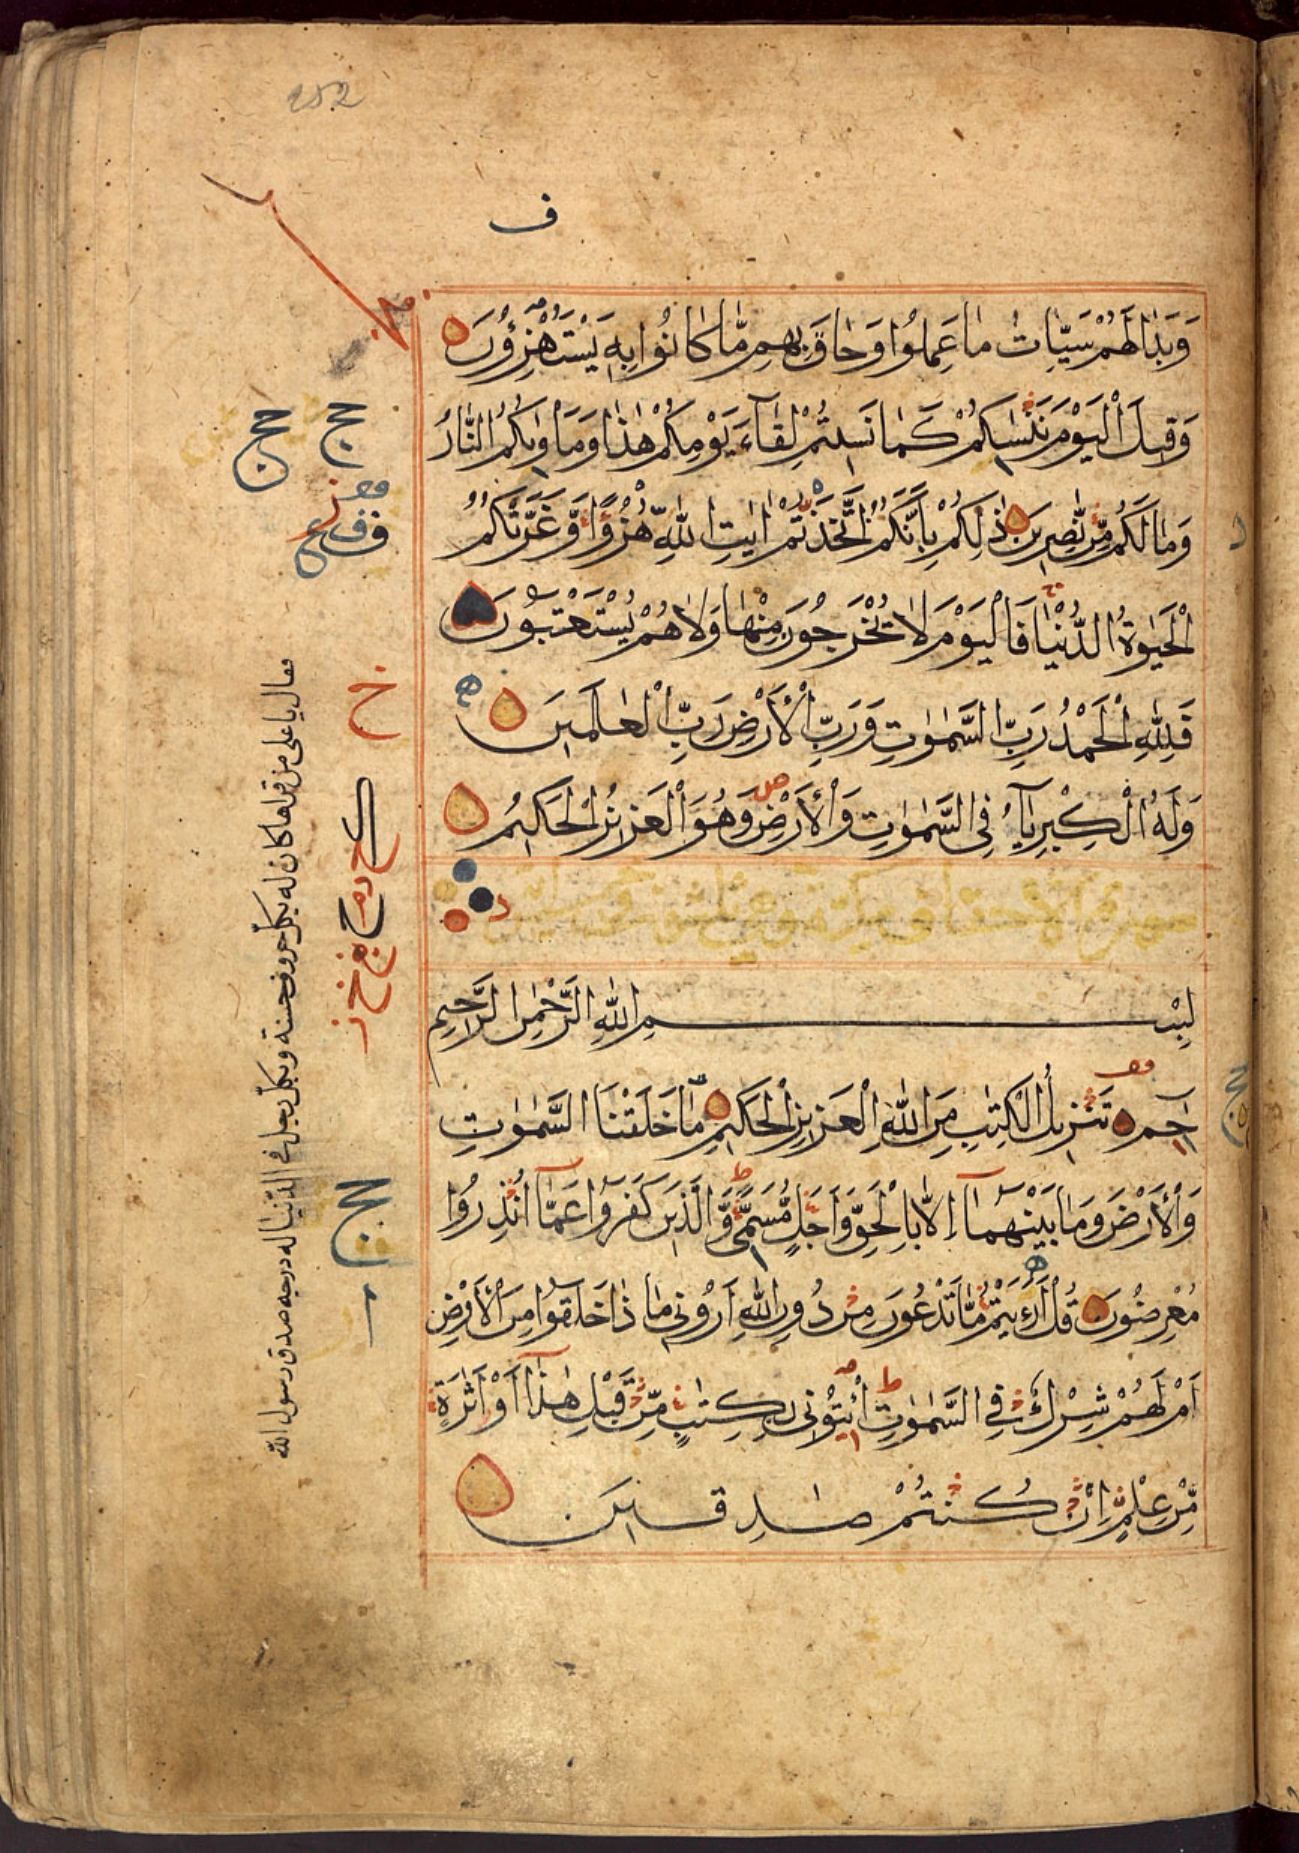 252
ف
وَبَدَا لَهُمْ سَيِّاٰتُ مَا عَمِلُوا وَحَاقَ بِهِمْ مَّا كَانُوا بِهٖ يَسْتَهْزِؤُنَ
وَقِيلَ الْيَوْمَ نَنْسٰىكُمْ كَمَا نَسِيتُمْ لِقَآءَ يَوْمِكُمْ هٰذَا وَمَاْوٰىكُمُ النَّارُ
وَمَا لَكُمْ مِّنْ نّٰصِرِينَ ذٰلِكُمْ بِاَنَّكُمُ اتَّخَذْتُمْ اٰيٰتِ اللّٰهِ هُزُوًا وَّغَرَّتْكُمُ
الْحَيٰوةُ الدُّنْيَا فَالْيَوْمَ لَا يُخْرَجُونَ مِنْهَا وَلَا هُمْ يُسْتَعْتَبُونَ
فَلِلّٰهِ الْحَمْدُ رَبِّ السَّمٰوٰتِ وَرَبِّ الْاَرْضِ رَبِّ الْعٰلَمِينَ
وَلَهُ الْكِبْرِيَآءُ فِى السَّمٰوٰتِ وَالْاَرْضِ وَهُوَ الْعَزِيزُ الْحَكِيمُ
بِسْمِ اللّٰهِ الرَّحْمٰنِ الرَّحِيمِ
حٰمٓ تَنْزِيلُ الْكِتٰبِ مِنَ اللّٰهِ الْعَزِيزِ الْحَكِيمِ مَا خَلَقْنَا السَّمٰوٰتِ
وَالْاَرْضَ وَمَا بَيْنَهُمَآ اِلَّا بِالْحَقِّ وَاَجَلٍ مُّسَمًّى وَّالَّذِينَ كَفَرُوا عَمَّآ اُنْذِرُوا
مُعْرِضُونَ قُلْ اَرَءَيْتُمْ مَّا تَدْعُونَ مِنْ دُونِ اللّٰهِ اَرُونِى مَا ذَا خَلَقُوا مِنَ الْاَرْضِ
اَمْ لَهُمْ شِرْكٌ فِى السَّمٰوٰتِ اِئْتُونِى بِكِتٰبٍ مِّنْ قَبْلِ هٰذَآ اَوْ اَثٰرَةٍ
مِّنْ عِلْمٍ اِنْ كُنْتُمْ صٰدِقِينَ
فقال يا على من قراها كان له بكل حروف حسنة وبكل رجل فى الدنيا له درجه صدق رسول الله